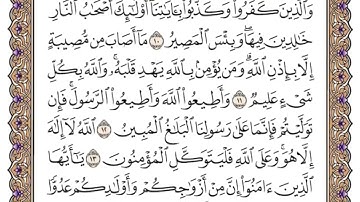 وَٱلَّذِينَ كَفَرُوا۟ وَكَذَّبُوا۟ بِـَٔايَٰتِنَآ أُو۟لَٰٓئِكَ أَصْحَٰبُ ٱلنَّارِ
خَٰلِدِينَ فِيهَا ۖ وَبِئْسَ ٱلْمَصِيرُ ١٠ مَآ أَصَابَ مِن مُّصِيبَةٍ
إِلَّا بِإِذْنِ ٱللَّهِ ۗ وَمَن يُؤْمِنۢ بِٱللَّهِ يَهْدِ قَلْبَهُۥ ۚ وَٱللَّهُ بِكُلِّ
شَىْءٍ عَلِيمٌ ١١ وَأَطِيعُوا۟ ٱللَّهَ وَأَطِيعُوا۟ ٱلرَّسُولَ ۚ فَإِن
تَوَلَّيْتُمْ فَإِنَّمَا عَلَىٰ رَسُولِنَا ٱلْبَلَٰغُ ٱلْمُبِينُ ١٢ ٱللَّهُ لَآ إِلَٰهَ
إِلَّا هُوَ ۚ وَعَلَى ٱللَّهِ فَلْيَتَوَكَّلِ ٱلْمُؤْمِنُونَ ١٣ يَٰٓأَيُّهَا
ٱلَّذِينَ ءَامَنُوٓا۟ إِنَّ مِنْ أَزْوَٰجِكُمْ وَأَوْلَٰدِكُمْ عَدُوًّا